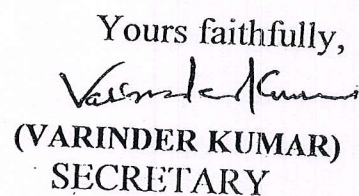 Yours faithfully,
Varinder Kumar
(VARINDER KUMAR)
SECRETARY